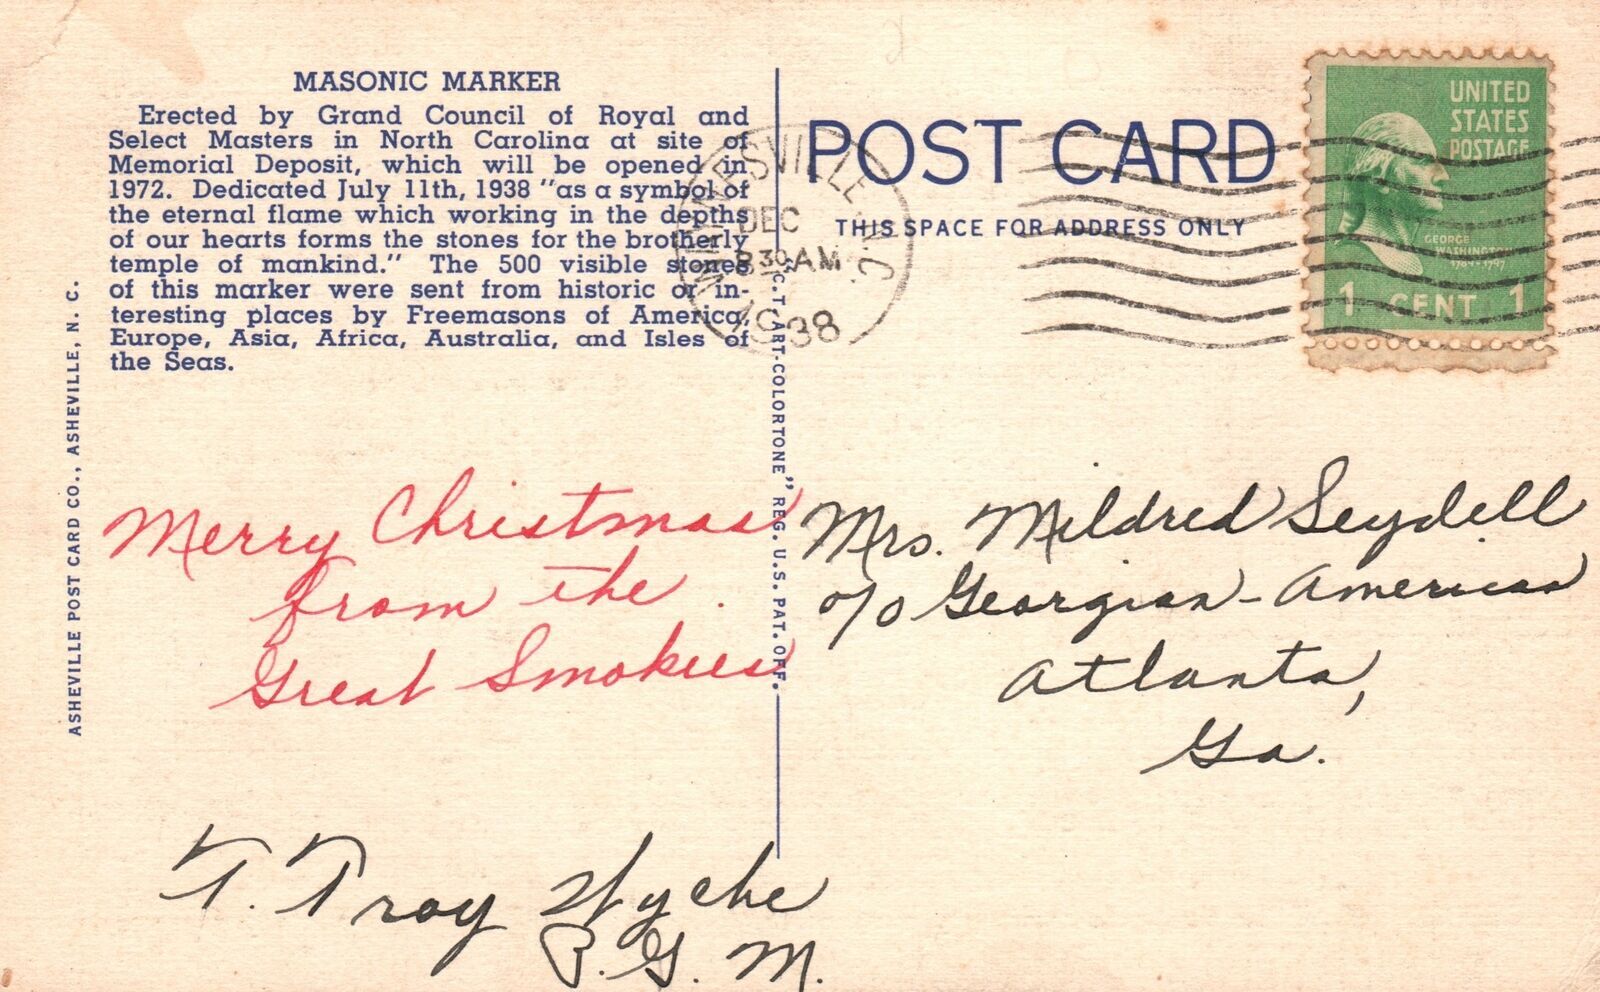 MASONIC MARKER
Erected by Grand Council of Royal and
Select Masters in North Carolina at site of
Memorial Deposit, which will be opened in
1972. Dedicated July 11th, 1938 "as a symbol of
the eternal flame which working in the depths
of our hearts forms the stones for the brotherly
temple of mankind." The 500 visible stones
of this marker were sent from historic or in-
teresting places by Freemasons of America,
Europe, Asia, Africa, Australia, and Isles of
the Seas.
ASHEVILLE POST CARD CO., ASHEVILLE, N. C.
Merry Christmas
from the
Great Smokies
T. Troy Wyche
P. G. M.
C. T. ART-COLORTONE" REG. U.S. PAT. OFF.
POST CARD
THIS SPACE FOR ADDRESS ONLY
WAYNESVILLE N.C.
DEC
8 30 AM
1938
UNITED
STATES
POSTAGE
GEORGE
WASHINGTON
1789-1797
1 CENT 1
Mrs. Mildred Seydell
c/o Georgian-American
Atlanta,
Ga.